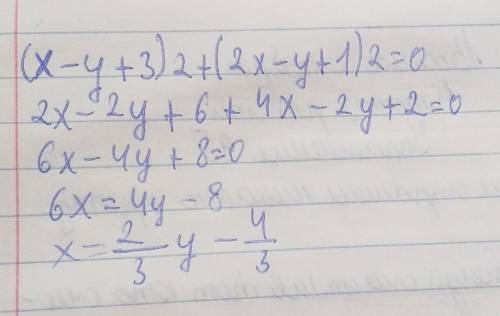 (x-y+3)2+(2x-y+1)2=0
2x-2y+6+4x-2y+2=0
6x-4y+8=0
6x=4y-8
x=2/3y-4/3